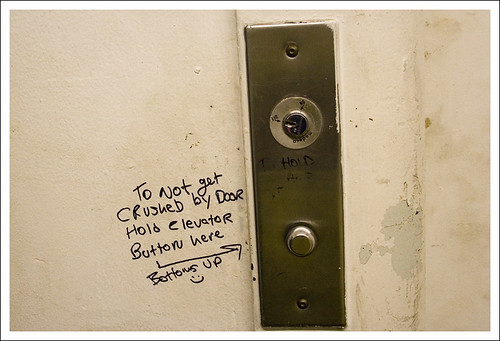 HOLD
To Not get
CRushed by DOOR
Hold Elevator
Button here
Bottoms UP